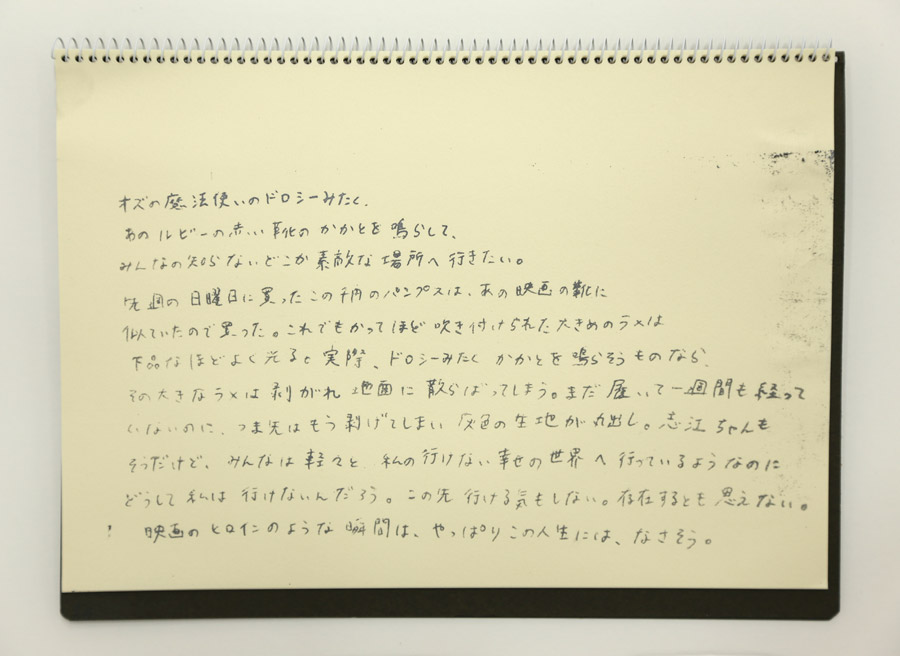 オズの魔法使いのドロシーみたく、
あのルビーの赤い靴のかかとを鳴らして、
みんなの知らないどこか素敵な場所へ行きたい。
先週の日曜日に買ったこの千円のパンプスは、あの映画の靴に
似ていたので買った。これでもかってほど吹き付けられた大きめのラメは
下品なほどよく光ると実際、ドロシーみたくかかとを鳴らそうものなら
その大きなラメは剥がれ地面に散らばってしまう。まだ履いて一週間も経って
いないのに、つま先はもう剥げてしまい灰色の生地が丸出し。志江ちゃんも
そうだけど、みんなは軽々と私の行けない幸せの世界へ行っているようなのに
どうして私は行けないんだろう。この先行ける気もしない。存在するとも思えない。
映画のヒロインのような瞬間は、やっぱりこの人生には、なさそう。